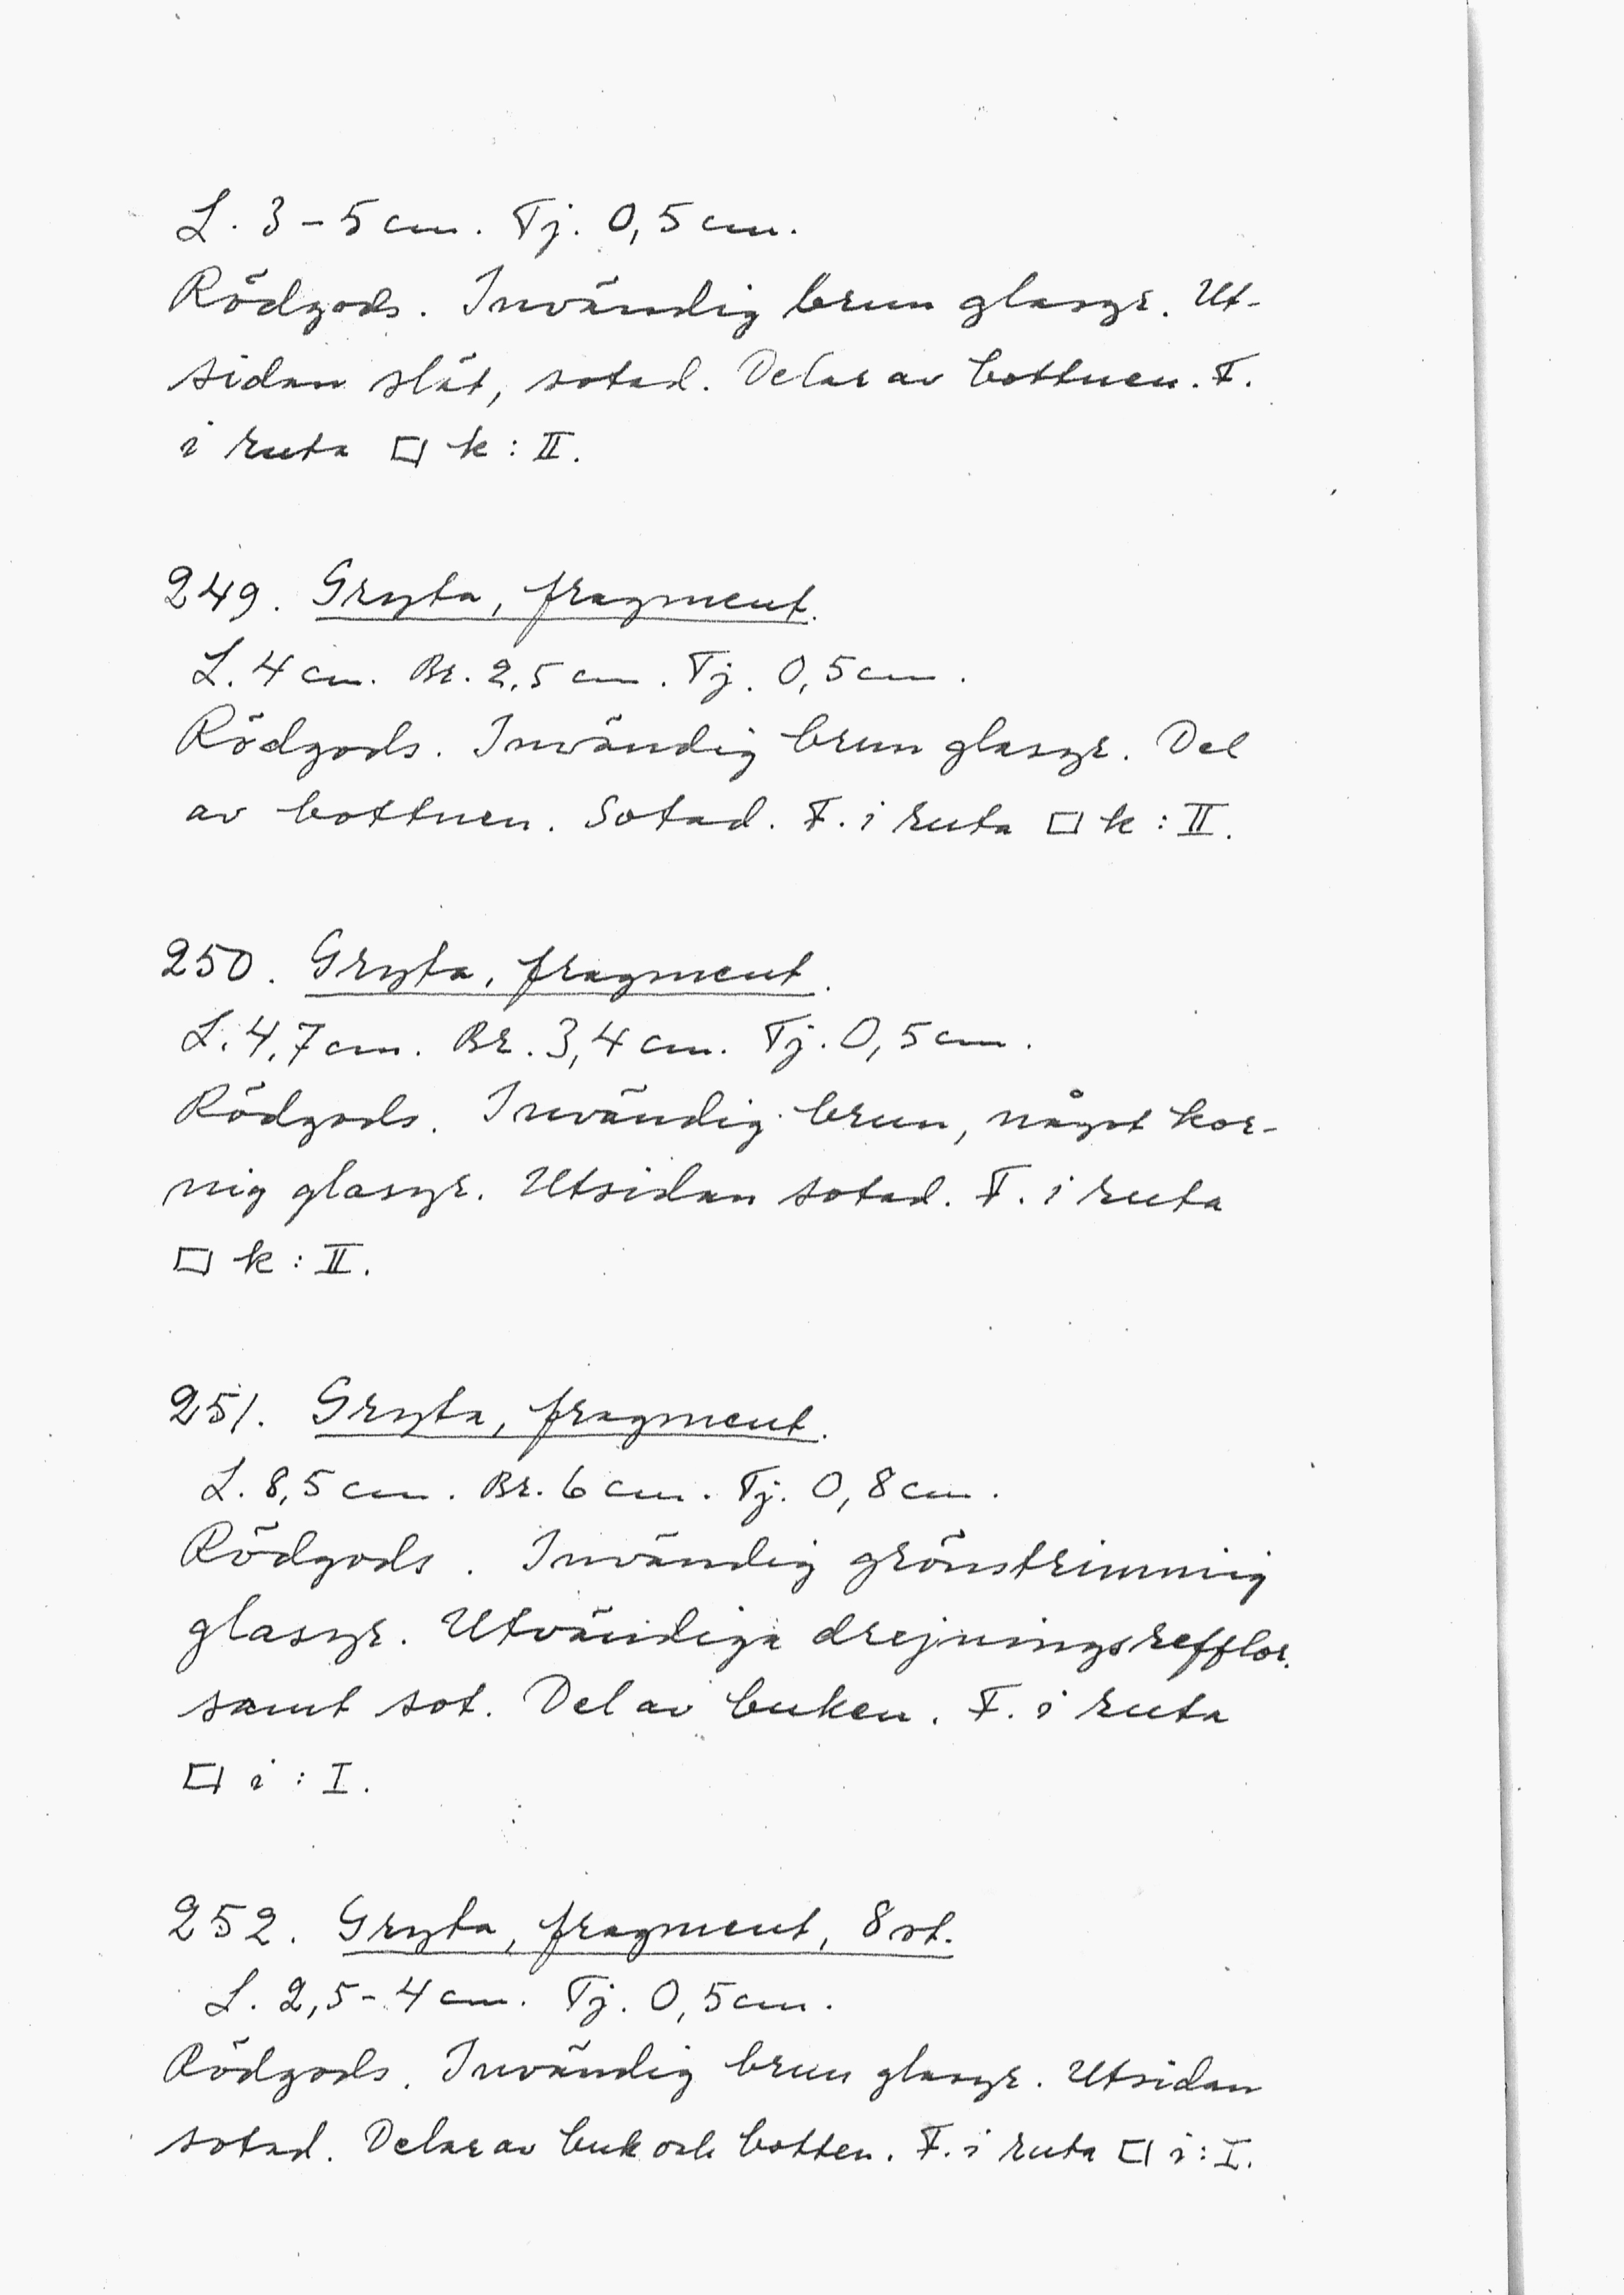 L. 3-5 cm. Tj. 0,5 cm.
Rödgods. Invändig brun glasyr. Ut-
sidan slät, sotad. Delar av bottnen. F.
i ruta □ k : II.
249. Gryta, fragment.
L. 4 cm. Br. 2,5 cm. Tj. 0,5 cm.
Rödgods. Invändig brun glasyr. Del
av bottnen. Sotad. F. i ruta □ k : II.
250. Gryta, fragment.
L. 4,7 cm. Br. 3,4 cm. Tj. 0,5 cm.
Rödgods. Invändig brun, något kor-
nig glasyr. Utsidan sotad. F. i ruta
□ k : II.
251. Gryta, fragment.
L. 8,5 cm. Br. 6 cm. Tj. 0,8 cm.
Rödgods. Invändig grönstrimmig
glasyr. Utvändiga drejningsrefflor.
samt sot. Del av buken. F. i ruta
□ i : I.
252. Gryta, fragment, 8 st.
L. 2,5-4 cm. Tj. 0,5 cm.
Rödgods. Invändig brun glasyr. Utsidan
sotad. Delar av buk och botten. F. i ruta □ i : I.